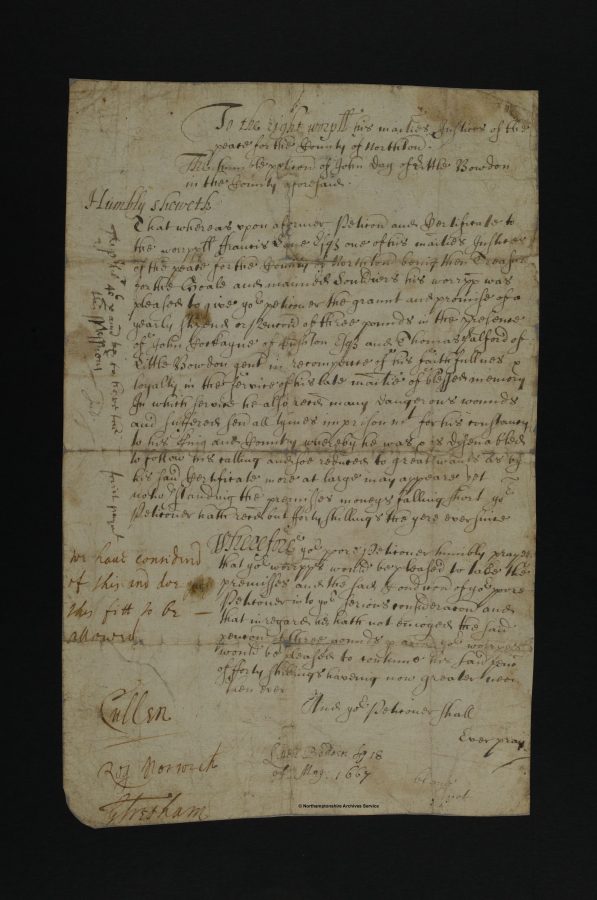 To the right worpll his maties Justices of the
peace for the County of Northton.
The humble peticon of John Day of Little Bowdon
in the County aforesaid.
Humbly sheweth
That whereas upon a former Peticon and Certificate to
the worpll Francis Lane Esqr one of his maties Justices
of the peace for the County of Northton being then Treasr
for the Goale and maimed Souldiers his worpp was
pleased to give yor petitioner the graunt and promise of a
yearly stipend or Pencon of three pounds in the Presence
of John Esqr and Thomas of
Little Bowdon gent in recompence of his faithfullnes &
loyalty in the service of his late matie of blessed memory
In which service he also recd many Dangerous wounds
and suffered sevall tymes imprisonmt for his constancy
to his King and Country whereby he was & is dysenabled
to follow his calling and soe reduced to great wants as by
his said Certificate more at large may appeare yet
notwthstanding the premisses moneys falling short yor
Petitioner hath recd but fforty shillings the yere ever since
Wherefore yor poore Petitioner humbly prayes
that yor worpps would be pleased to take the
premisses and the sad Condicon of yor poore
Petitioner into yor serious consideracon and
that in regard he hath not enioyed the said
pencon of three pounds p ann yor worpps
would be pleased to continue his said penc
of fforty shillings haveing now greater need
then ever
And yor Petitioner shall
Ever pray
we have considrd
of this and doe
this fitt to be
allowed
Cullen
Rog Norwich
G Tresham
18
of May. 1667
© Northamptonshire Archives Service